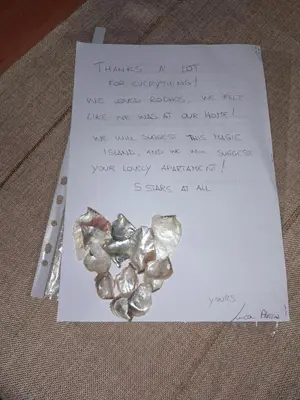 THANKS A LOT
FOR EVERYTHING!
WE LOVED RODHOS, WE FELT
LIKE WE WAS AT OUR HOME!
WE WILL SUGGEST THIS MAGIC
ISLAND, AND WE WILL SUGGEST
YOUR LOVELY APARTAMENT!
5 STARS AT ALL
YOURS